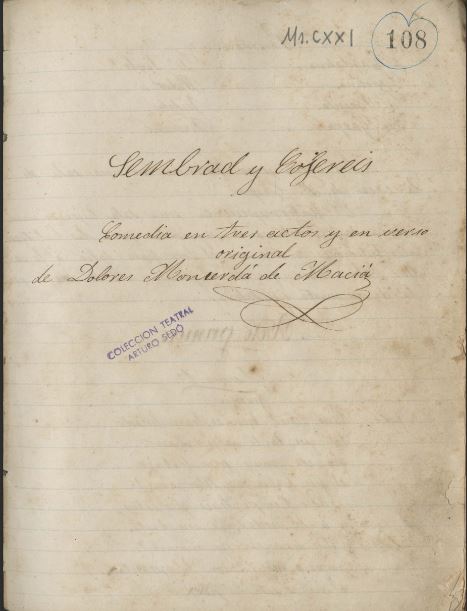 Ms. CXXI
108
Sembrad y Cojereis
Comedia en tres actos y en verso
original
de Dolores Moncerdá de Maciá
COLECCION TEATRAL
ARTURO SEDÓ